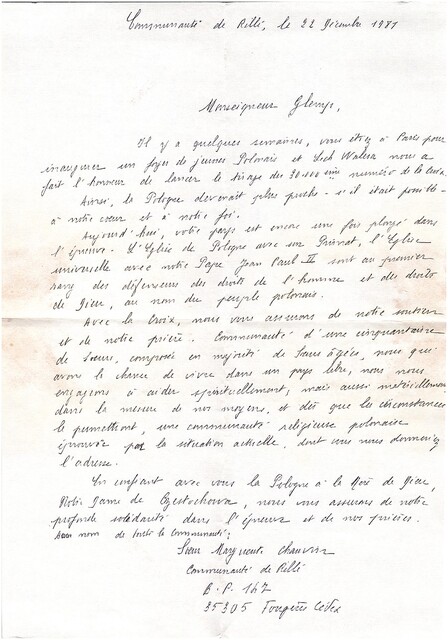 Communauté de Rillé, le 22 Décembre 1981
Monseigneur Glemp,
Il y a quelques semaines, vous étiez à Paris pour
inaugurer un foyer de jeunes Polonais et Lech Walesa nous a
fait l'honneur de lancer le tirage des 30.000 ème numéro de la Croix.
Ainsi, la Pologne devenait plus proche - s'il était possible -
à notre cœur et à notre foi.
Aujourd'hui, votre pays est encore une fois plongé dans
l'épreuve. L'Eglise de Pologne avec son Primat, l'Eglise
universelle avec notre Pape Jean Paul II sont au premier
rang des défenseurs des droits de l'homme et des droits
de Dieu, au nom du peuple polonais.
Avec la Croix, nous vous assurons de notre soutien
et de notre prière. Communauté d'une cinquantaine
de Sœurs, composée en majorité de Sœurs âgées, nous qui
avons la chance de vivre dans un pays libre, nous nous
engageons à aider spirituellement, mais aussi matériellement
dans la mesure de nos moyens, et dès que les circonstances
le permettront, une communauté religieuse polonaise
éprouvée par la situation actuelle, dont vous nous donneriez
l'adresse.
En confiant avec vous la Pologne à la Mère de Dieu,
Notre Dame de Czestochowa, nous vous assurons de notre
profonde solidarité dans l'épreuve et de nos prières.
Au nom de toute la Communauté,
Sœur Marguerite Chauvin
Communauté de Rillé
B.P. 147
35305 Fougères Cédex